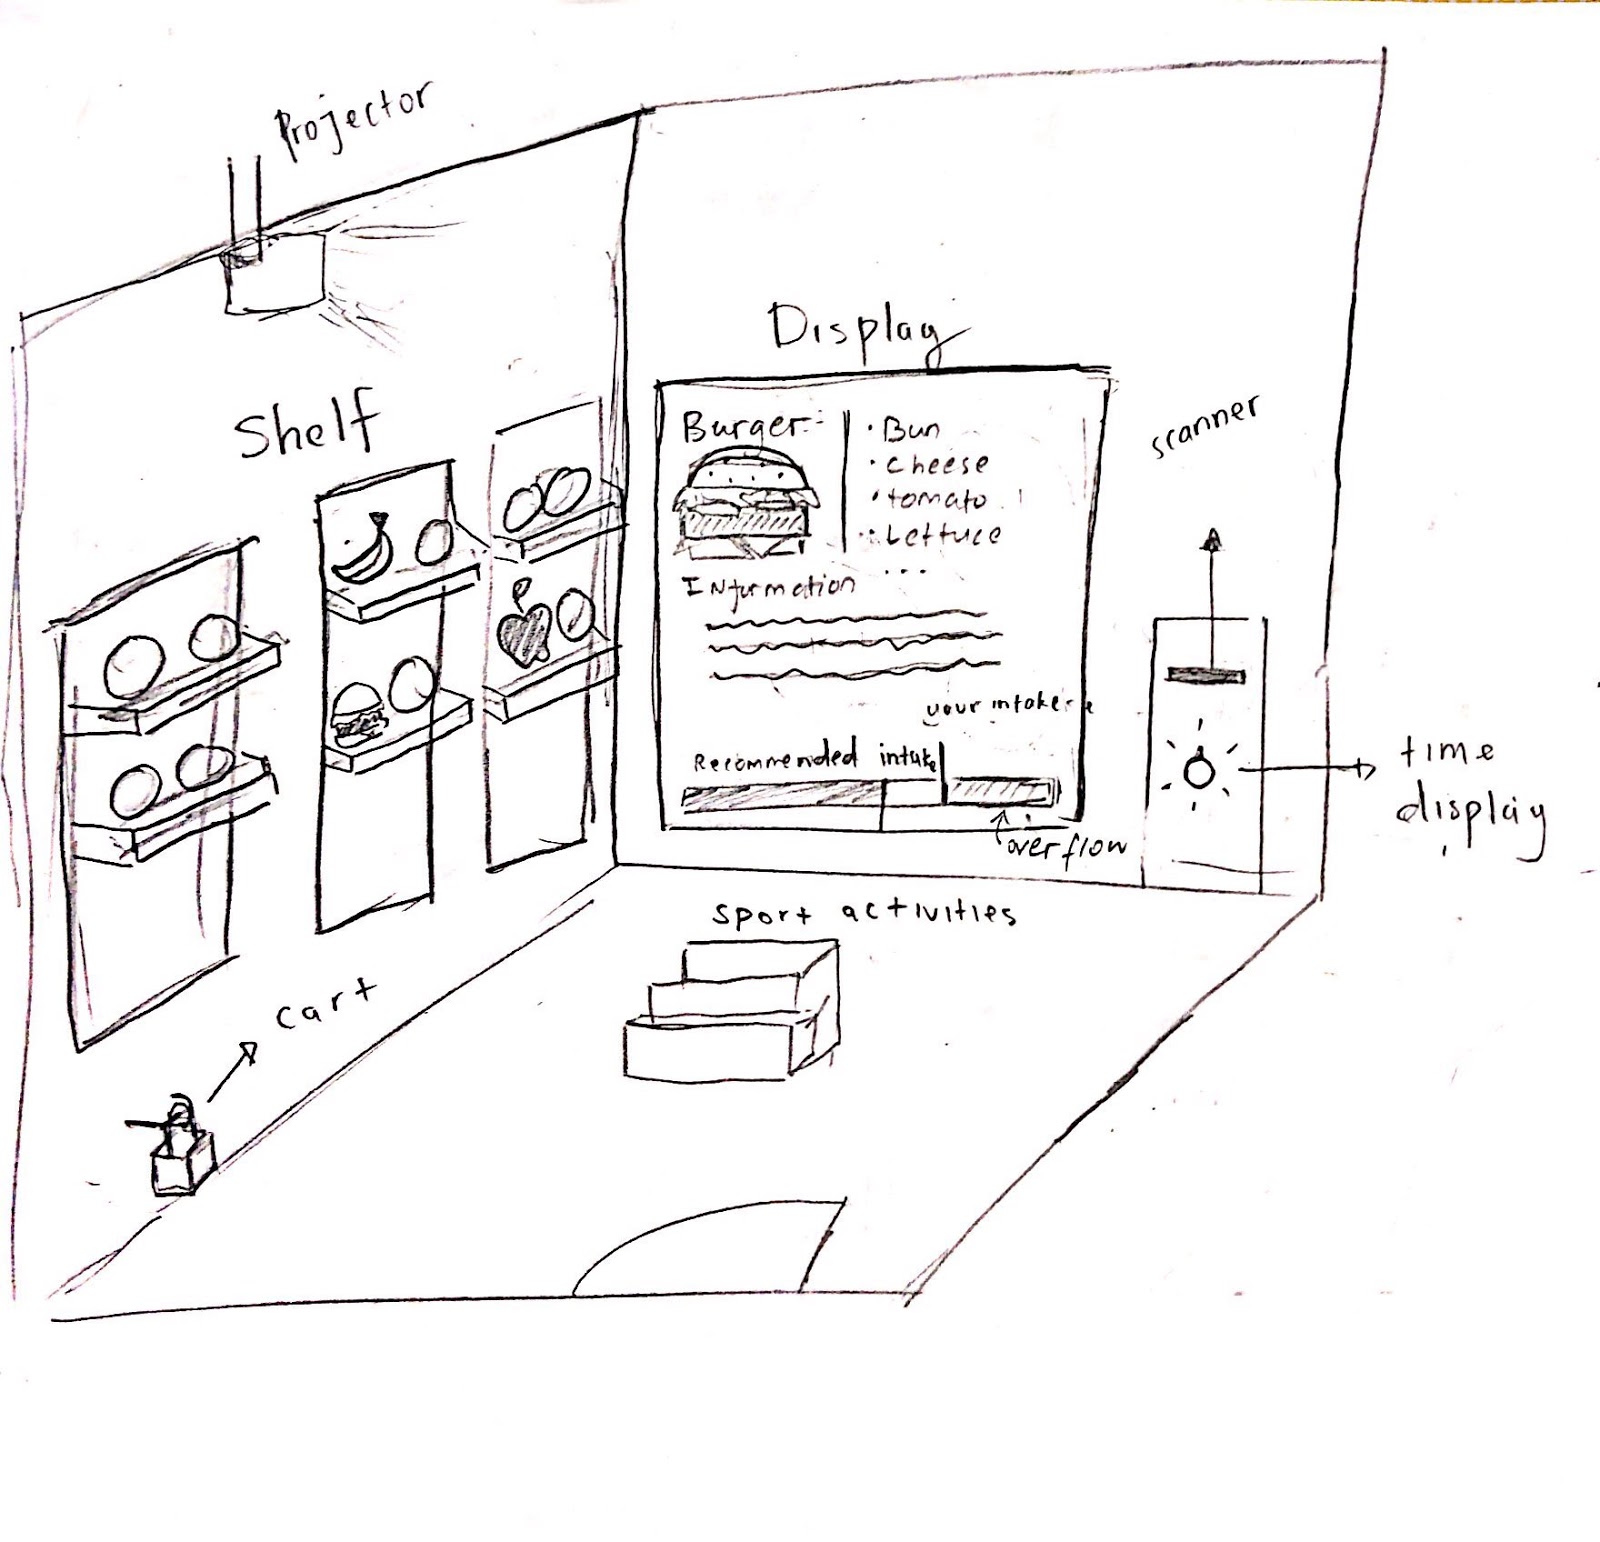 Projector
Shelf
Display
Burger:
• Bun
• cheese
• tomato
• Lettuce
...
Information
your intake
Recommended intake
overflow
scanner
time
display
sport activities
cart